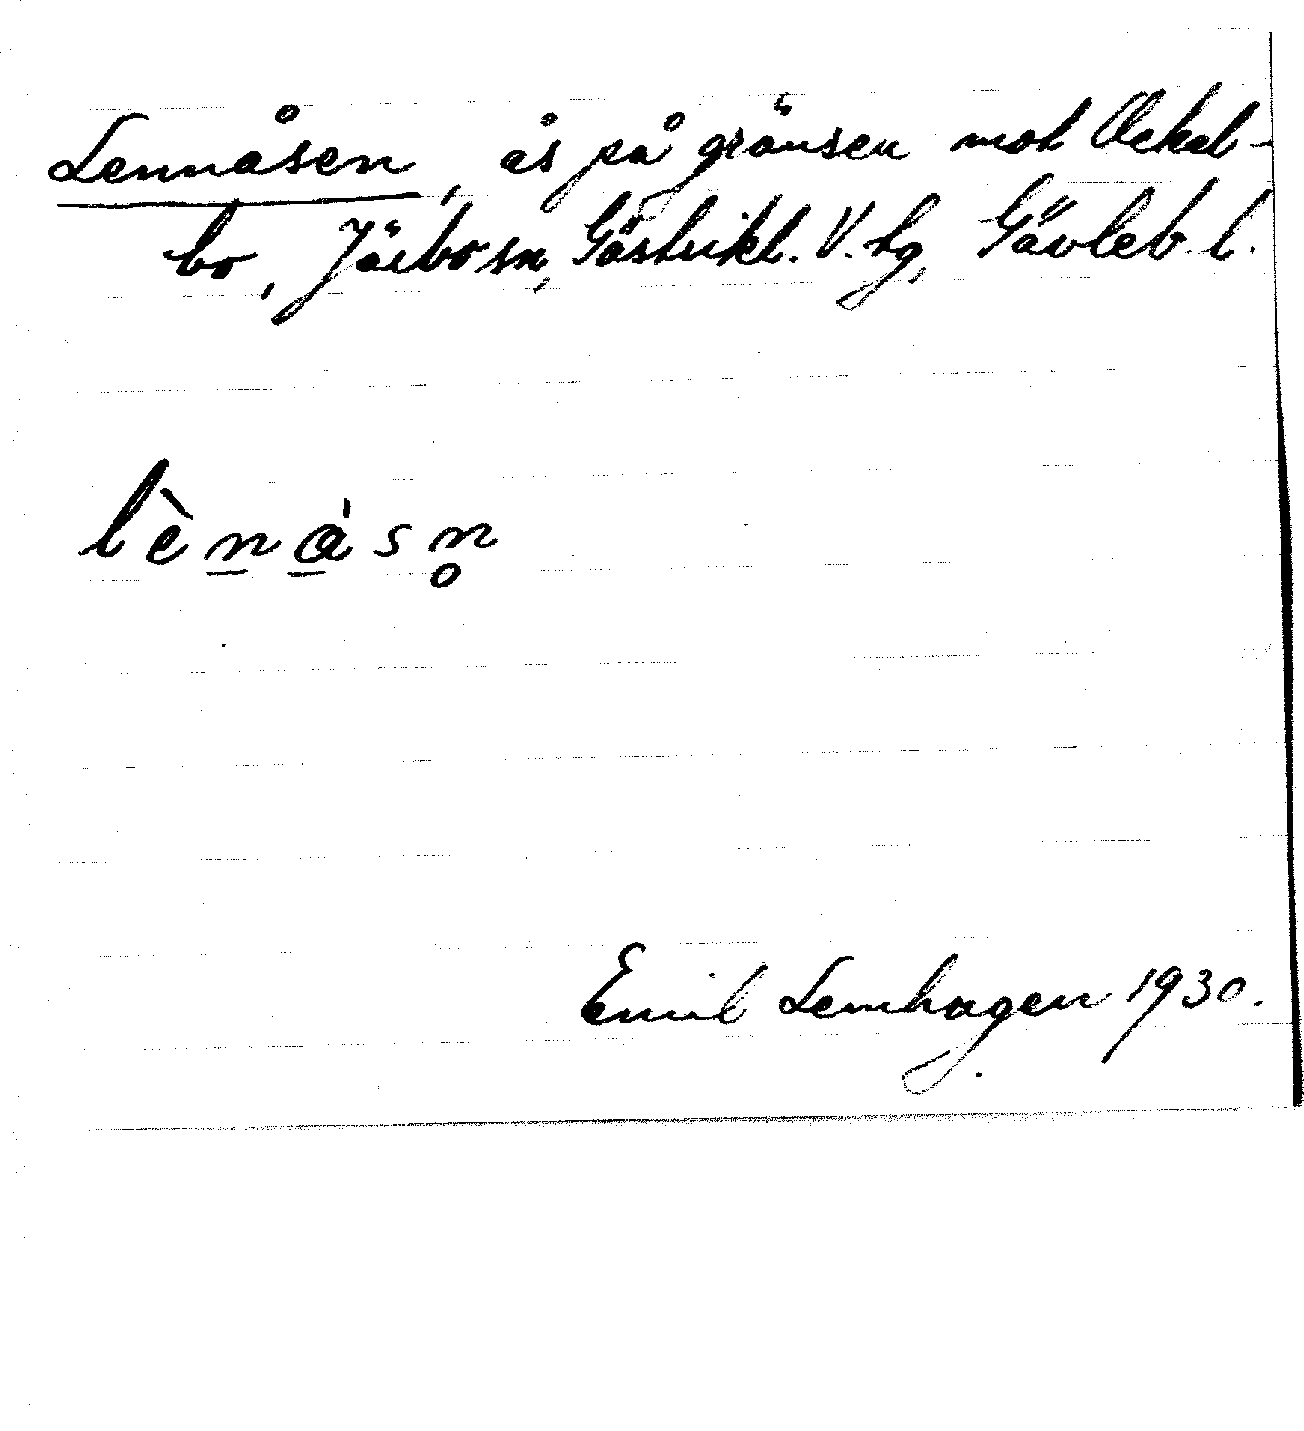 Lennåsen, ås på gränsen mot Ockel-
bo, Järbo sn, Gästrikl. V. hg, Gävleb. l.
lènàsn̥
Emil Lemhagen 1930.